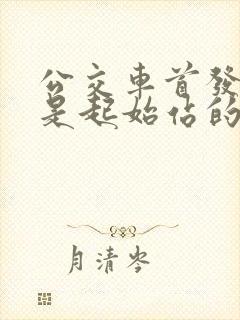 公交車首發
是起始佔的
月清岑